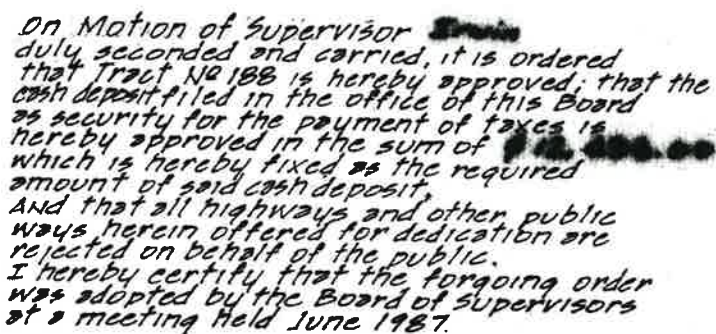 On Motion of Supervisor
duly seconded and carried, it is ordered
that Tract No 188 is hereby approved; that the
cash deposit filed in the office of this Board
as security for the payment of taxes is
hereby approved in the sum of
which is hereby fixed as the required
amount of said cash deposit,
And that all highways and other public
ways herein offered for dedication are
rejected on behalf of the public.
I hereby certify that the forgoing order
was adopted by the Board of Supervisors
at a meeting held June 1987.